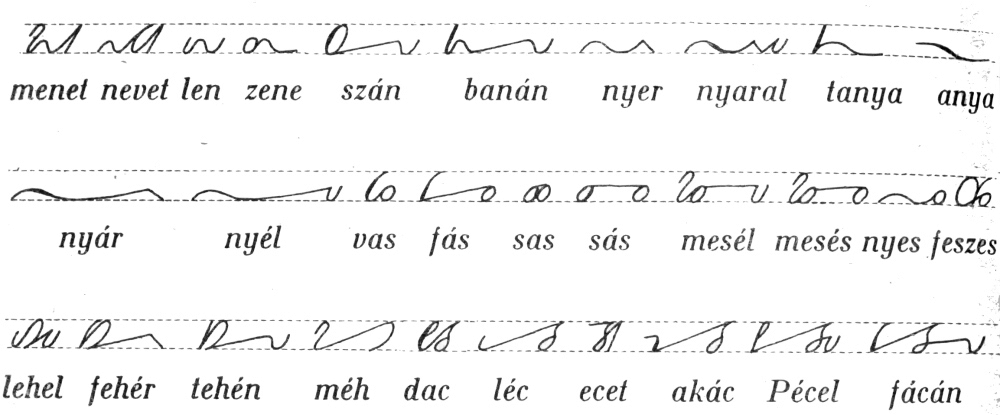 menet nevet len zene szán banán nyer nyaral tanya anya
nyár nyél vas fás sas sás mesél mesés nyes feszes
lehel fehér tehén méh dac léc ecet akác Pécel fácán